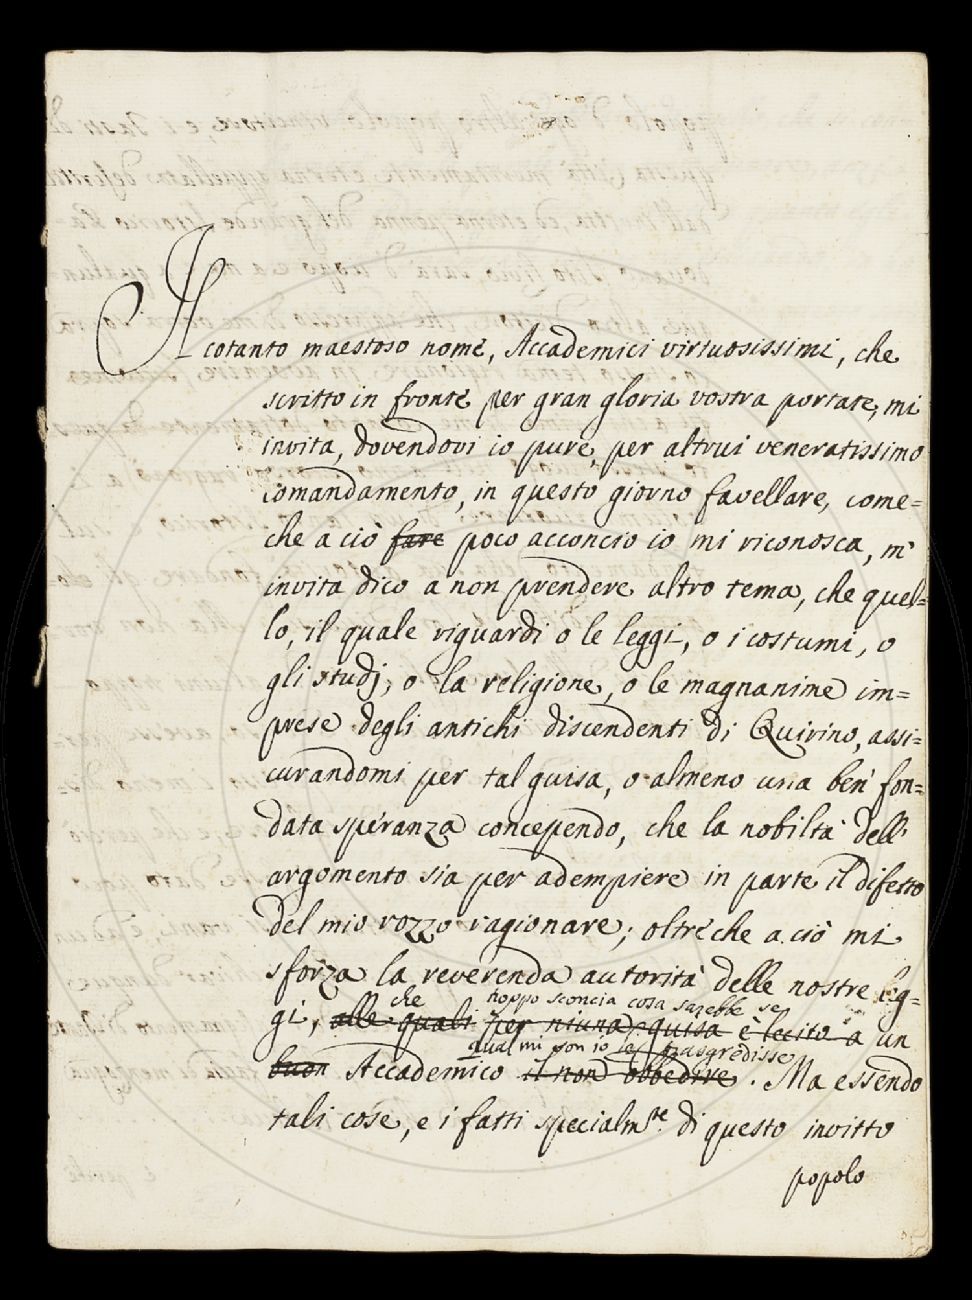 Il cotanto maestoso nome, Accademici virtuosissimi, che
scritto in fronte per gran gloria vostra portate, mi
invita, dovendovi io pure, per altrui veneratissimo
comandamento, in questo giorno favellare, come=
che a ciò fare poco acconcio io mi riconosca, m'
invita dico a non prendere altro tema, che quel=
lo, il quale riguardi o le leggi, o i costumi, o
gli studj, o la religione, o le magnanime im=
prese degli antichi discendenti di Quirino, assi=
curandomi per tal guisa, o almeno una ben fon=
data speranza concependo, che la nobiltà dell'
argomento sia per adempiere in parte il difetto
del mio rozzo ragionare; oltreche a ciò mi
sforza la reverenda autorità delle nostre leg=
che troppo sconcia cosa sarebbe se
gi, alle quali per niuna guisa è lecito a un
qual mi son io le trasgredisse
buon Accademico il non obbedire. Ma essendo
tali cose, e i fatti specialmte. di questo invitto
popolo